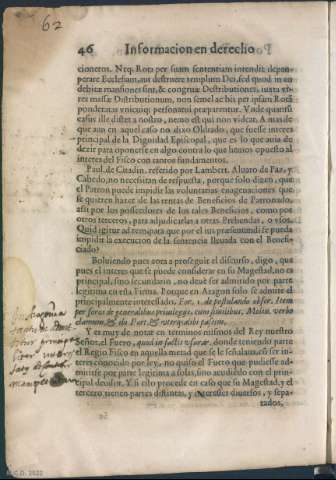 62
46 Informacion en derecho
cioneros. Neq. Rota per suam sententiam intendit depau-
perare Ecclesiam, aut destruere templum Dei, sed quod in eo
debitæ mansiones sint, & congruæ Distributiones, iuxta vi-
res massæ Distributionum, non semel ac bis per ipsam Rotã
ponderatas vnicuiq; personatui præparentur. Vnde quantũ
casus ille distet a nostro, nemo est qui non videat. A mas de
que aun en aquel caso no dixo Oldrado, que fuesse interes
principal de la Dignidad Episcopal, que es lo que auia de
dezir para oponerse en algo contra lo que hemos opuesto al
interes del Fisco con tantos fundamentos.
Paul. de Citadin. referido por Lambert. Aluaro de Paz, y
Cabedo, no necessitan de respuesta, porque solo dizen, que
el Patron puede impidir las voluntarias enagenaciones que
se quieren hazer de las rentas de Beneficios de Patronado,
assi por los posseedores de los tales Beneficios, como por
otros terceros, para adjudicarlas a otras Prebendas, o vsos.
Quid igitur ad rem para que por el ius præsentandi se pueda
impidir la execucion de la sentencia lleuada con el Benefi-
ciado?
Boluiendo pues aora a proseguir el discurso, digo, que
pues el interes que se puede considerar en su Magestad, no es
principal, sino secundario, no deue ser admitido por parte
legitima en esta Firma. Porque en Aragon solo se admite el
principalmente interessado. For. 1. de postulando obser. Item
per foros de generalibus priuilegijs, cum similibus, Molin. verbo
clamum, & du Part. & verb. pabulis pasium.
Y es muy de notar en terminos mismos del Rey nuestro
Señor, el Fuero, quod in factis vsuræ. donde teniendo parte
el Regio Fisco en aquella metad que se le señalaua, es ser in-
teres conocido por ley, no quiso el Fuero que pudiesse ad-
mitirse por parte legitima a solas, sino acudiedo con el prin-
cipal deudor. Y si esto procede en caso que su Magestad, y el
tercero tienen partes distintas, y interesses diuersos, y sepa-
rados,